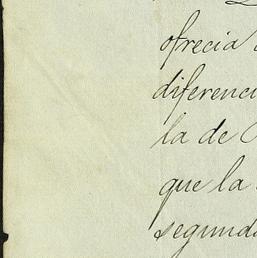 ofrecia
diferenci
la de
que la
segunda